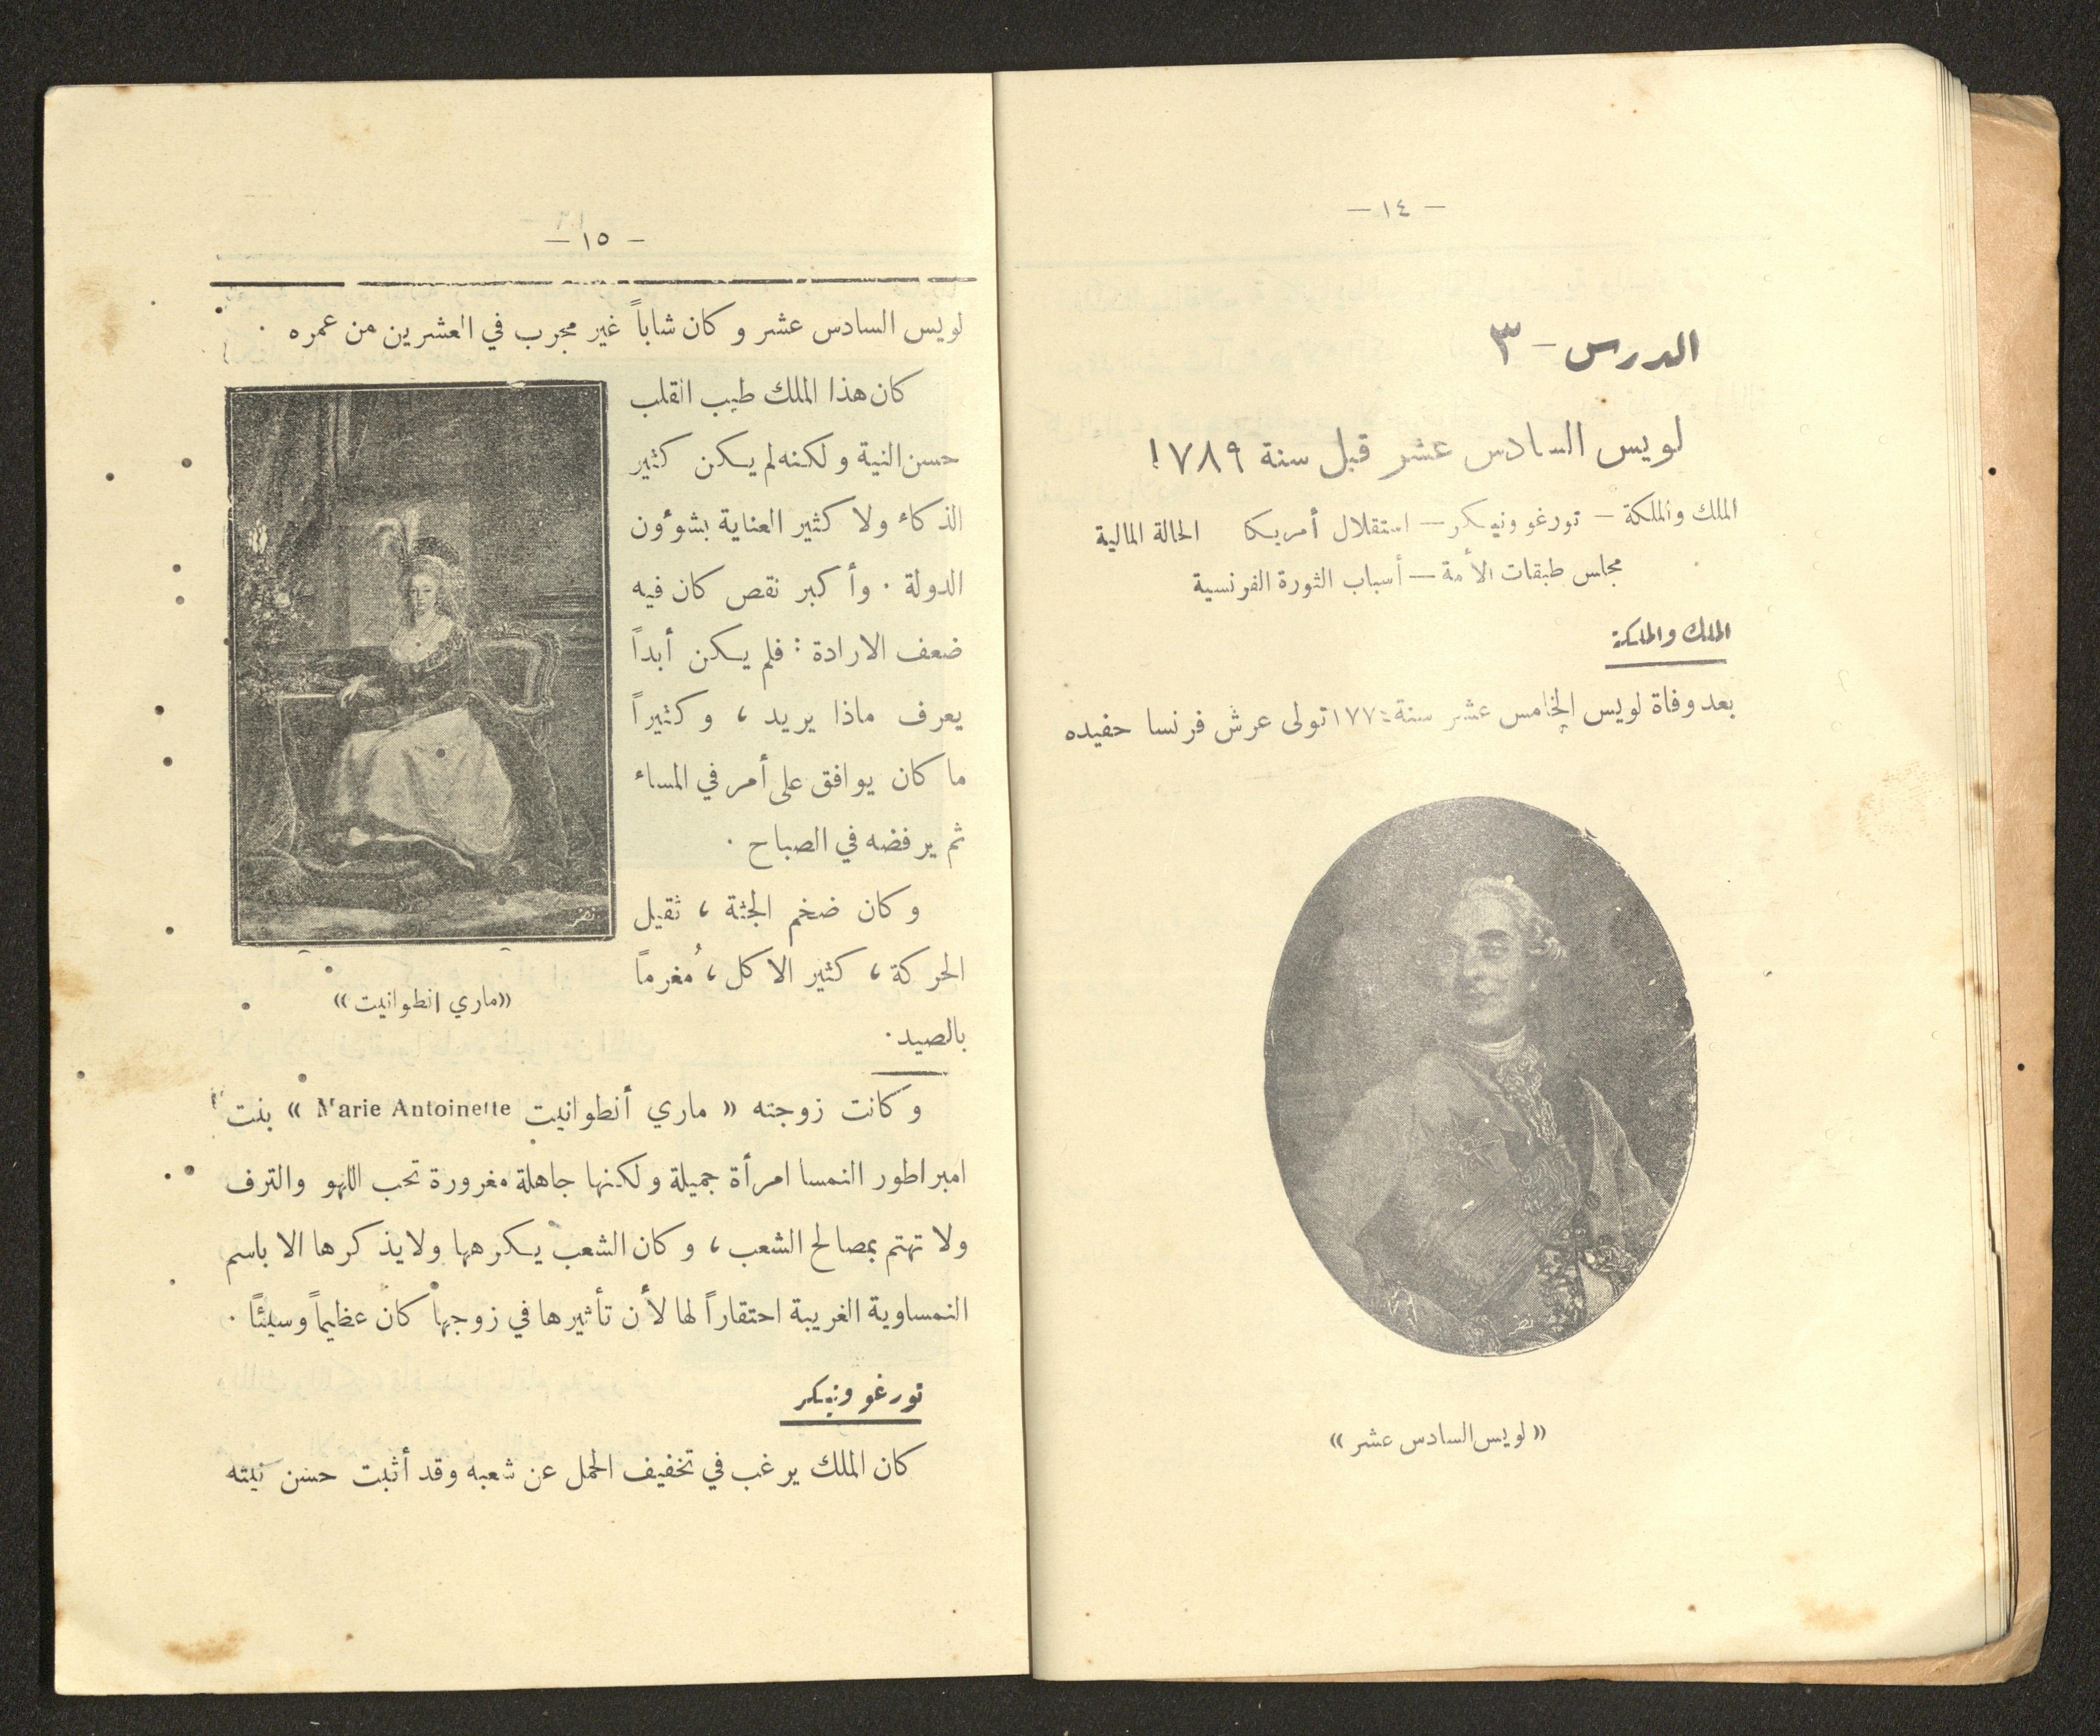 — ١٤ —
الدرس — ٣
لويس السادس عشر قبل سنة ١٧٨٩
الملك والملكة — تورغو ونيكر — استقلال أمريكا الحالة المالية
مجلس طبقات الأمة — أسباب الثورة الفرنسية
الملك والملكة
بعد وفاة لويس الخامس عشر سنة تولى عرش فرنسا حفيده
« لويس السادس عشر »
— ١٥ —
لويس السادس عشر وكان شاباً غير مجرب في العشرين من عمره .
كان هذا الملك طيب القلب
حسن النية ولكنه لم يكن كثير
الذكاء ولا كثير العناية بشوؤون
الدولة . وأكبر نقص كان فيه
ضعف الارادة : فلم يكن أبداً
يعرف ماذا يريد ، وكثيراً
ما كان يوافق على أمر في المساء
ثم يرفضه في الصباح .
وكان ضخم الجثة ، ثقيل
الحركة ، كثير الاكل ، مُغرماً
بالصيد .
«ماري انطوانيت»
وكانت زوجته « ماري أنطوانيت Marie Antoinette » بنت
امبراطور النمسا امرأة جميلة ولكنها جاهلة مغرورة تحب اللهو والترف
ولا تهتم بمصالح الشعب ، وكان الشعب يكرهها ولا يذكرها الا باسم
النمساوية الغريبة احتقاراً لها لأن تأثيرها في زوجها كان عظيماً وسيئاً .
تورغو ونيكر
كان الملك يرغب في تخفيف الحمل عن شعبه وقد أثبت حسن نيته